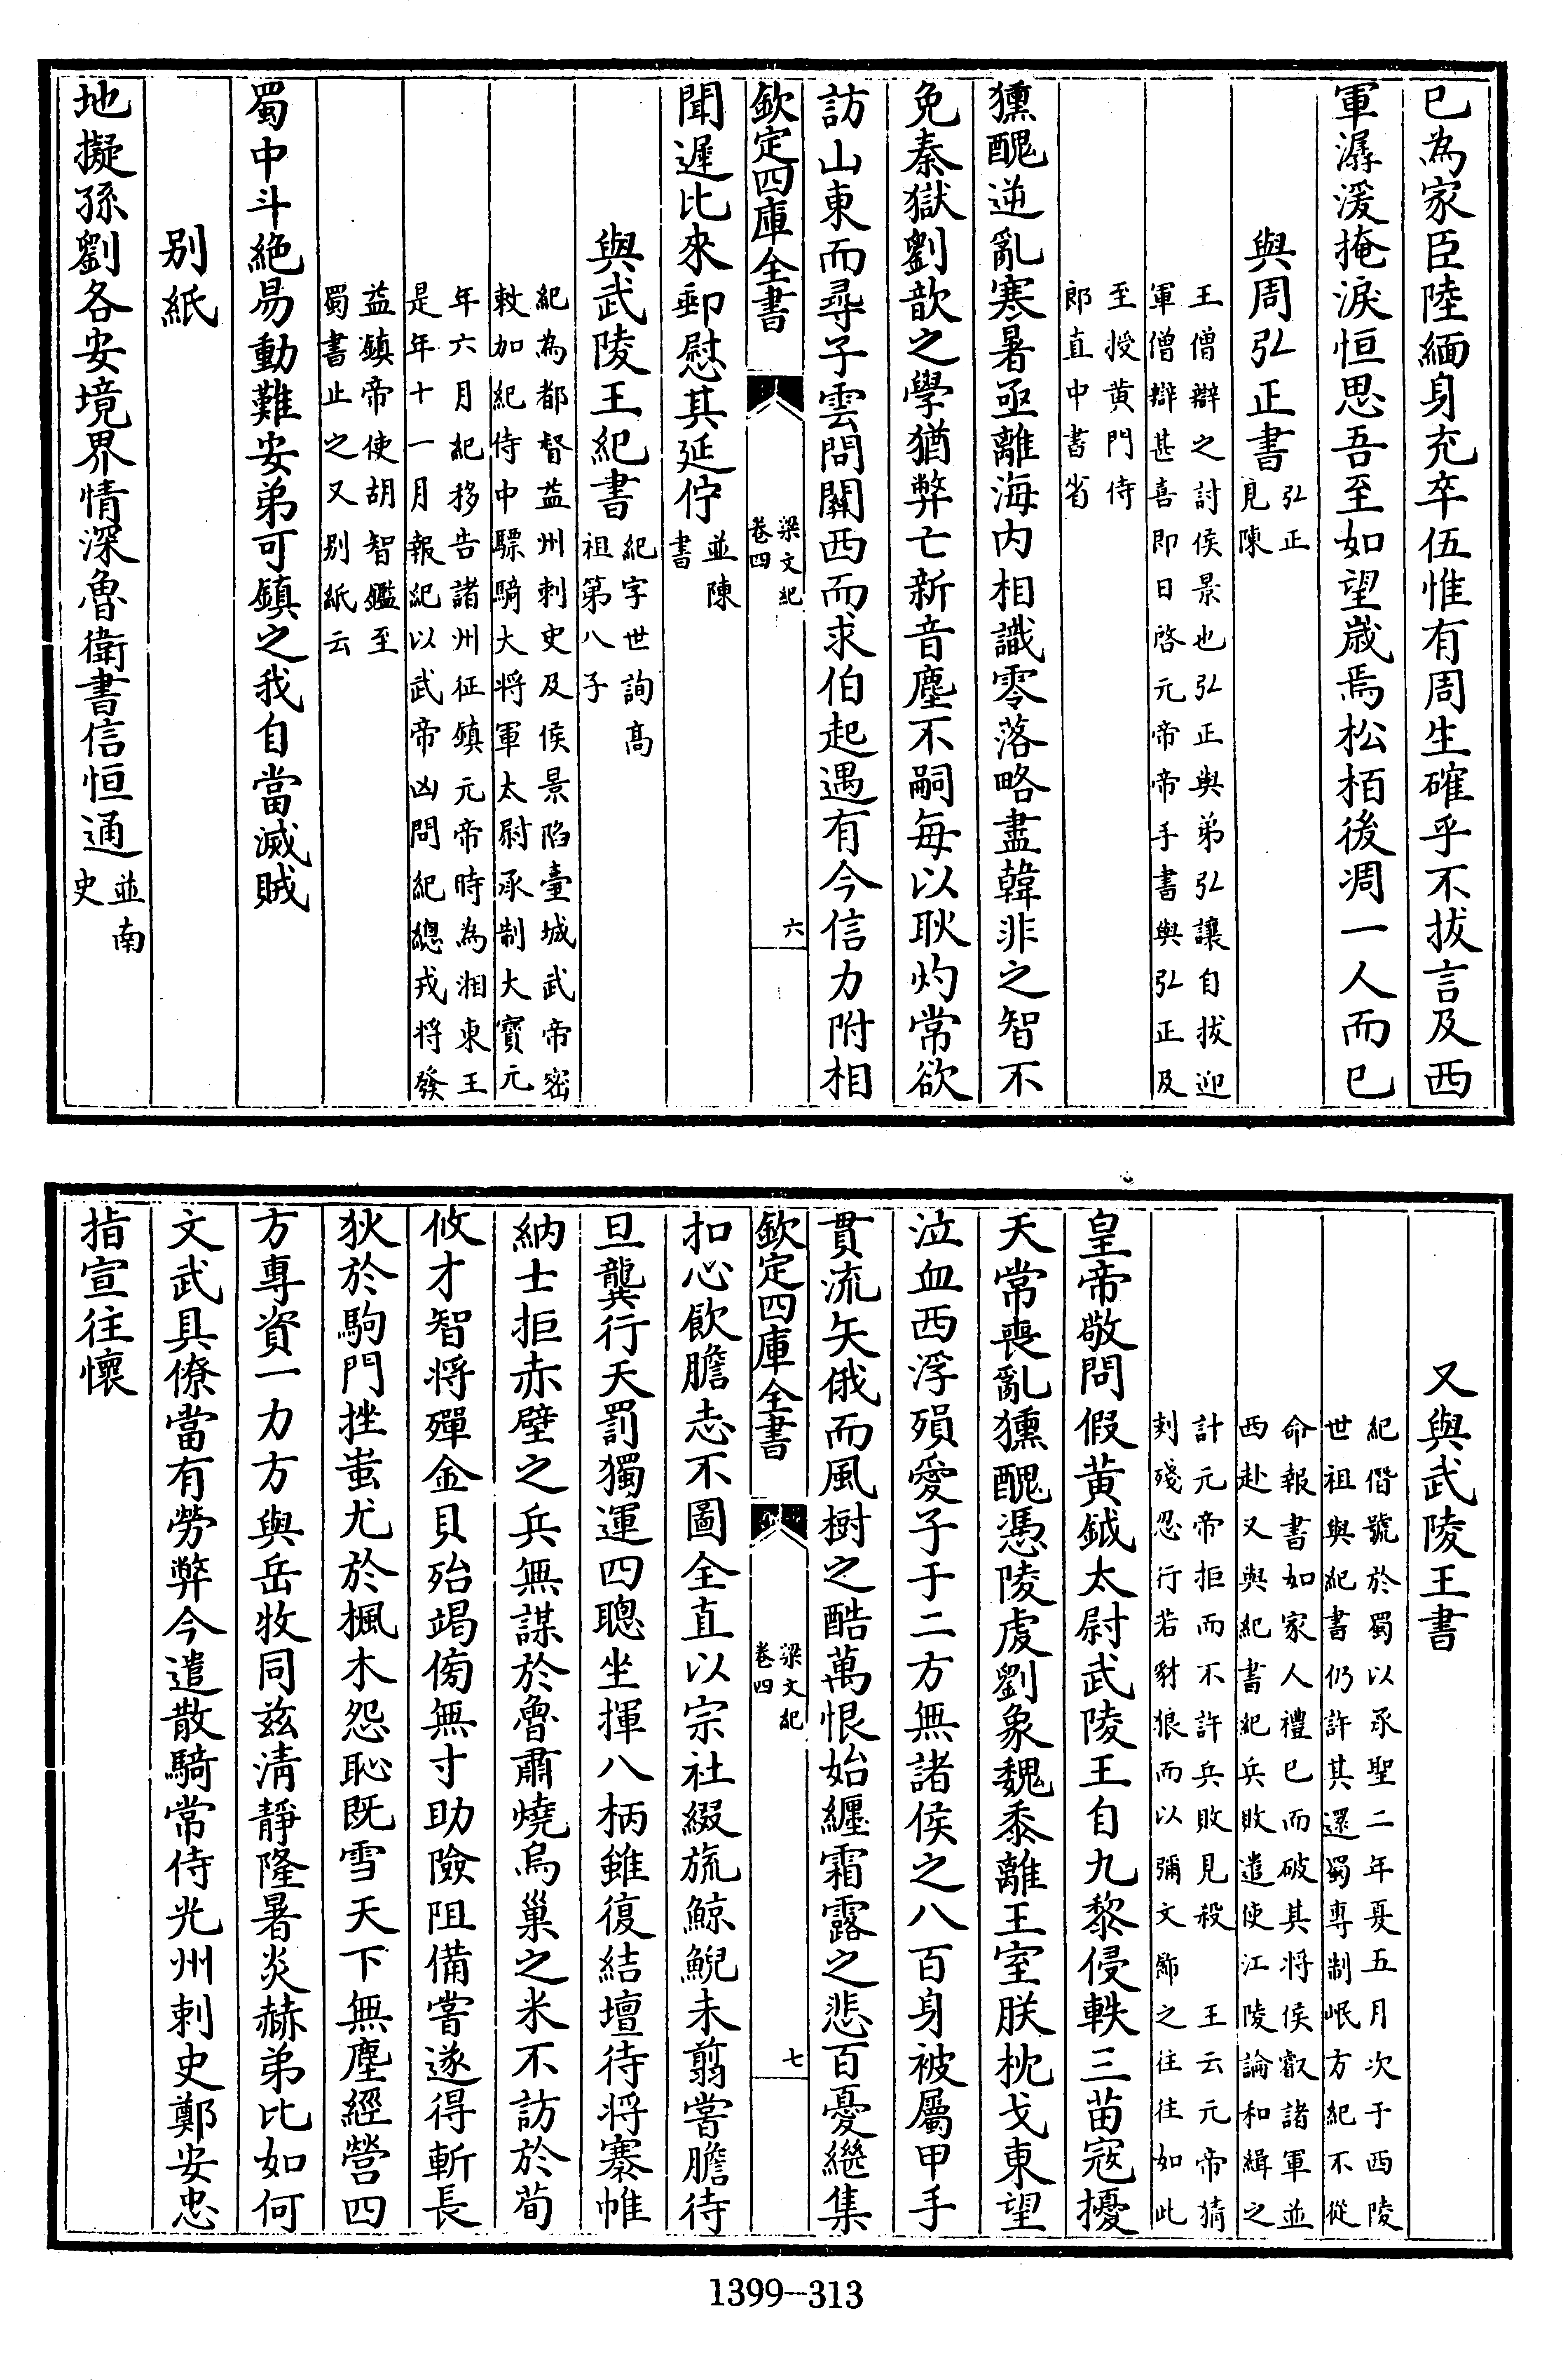 已為家臣陸緬身充卒伍惟有周生確乎不拔言及西
軍潺湲掩淚恒思吾至如望歲焉松栢後凋一人而已
與周弘正書
弘正
見陳
王僧辯之討侯景也弘正與弟弘讓自拔迎
軍僧辯甚喜即日啓元帝帝手書與弘正及
至授黄門侍
郎直中書省
獯醜逆亂寒暑亟離海内相識零落略盡韓非之智不
免秦獄劉歆之學猶弊亡新音塵不嗣每以耿灼常欲
訪山東而尋子雲問關西而求伯起遇有今信力附相
欽定四庫全書
梁文紀
卷四
六
聞遲比來郵慰其延佇
並陳
書
與武陵王紀書
紀字世詢高
祖第八子
紀為都督益州刺史及侯景陷臺城武帝密
敕加紀侍中驃騎大將軍太尉承制大寳元
年六月紀移告諸州征鎮元帝時為湘東王
是年十一月報紀以武帝凶問紀總戎將發
益鎮帝使胡智鑑至
蜀書止之又别紙云
蜀中斗絕易動難安弟可鎮之我自當滅賊
别紙
地擬孫劉各安境界情深魯衛書信恒通
並南
史
又與武陵王書
紀僭號於蜀以承聖二年夏五月次于西陵
世祖與紀書仍許其還蜀專制岷方紀不從
命報書如家人禮已而破其將侯叡諸軍並
西赴又與紀書紀兵敗遣使江陵論和緝之
計元帝拒而不許兵敗見殺 王云元帝猜
刻殘忍行若豺狼而以彌文飾之往往如此
皇帝敬問假黄鉞太尉武陵王自九黎侵軼三苗寇擾
天常喪亂獯醜憑陵虔劉象魏黍離王室朕枕戈東望
泣血西浮殞愛子于二方無諸侯之八百身被屬甲手
貫流矢俄而風樹之酷萬恨始纒霜露之悲百憂繼集
欽定四庫全書
梁文紀
卷四
七
扣心飲膽志不圖全直以宗社綴旒鯨鯢未翦嘗膽待
旦龔行天罰獨運四聰坐揮八柄雖復結壇待將褰帷
納士拒赤壁之兵無謀於魯肅燒烏巢之米不訪於荀
攸才智將殫金貝殆竭傍無寸助險阻備嘗遂得斬長
狄於駒門挫蚩尤於楓木怨恥既雪天下無塵經營四
方專資一力方與岳牧同兹淸靜隆暑炎赫弟比如何
文武具僚當有勞弊今遣散騎常侍光州刺史鄭安忠
指宣往懷
1399-313